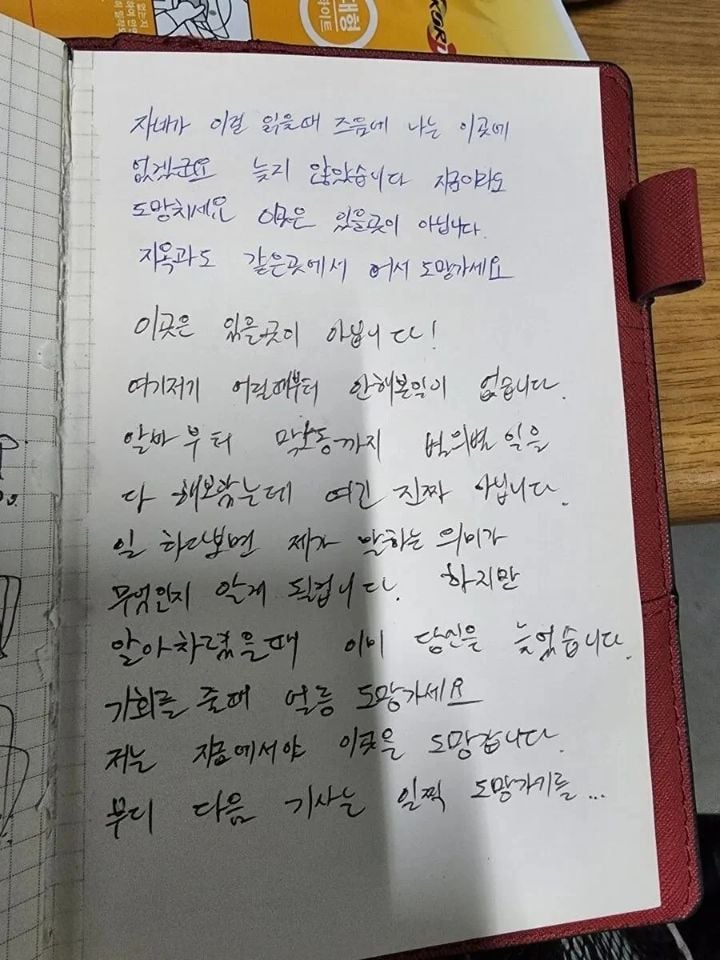 대형
라이트
KORI
자네가 이걸 읽을때 즈음에 나는 이곳에
없겠군요 늦지 않았습니다 지금이라도
도망치세요 이곳은 있을곳이 아닙니다.
지옥과도 같은곳에서 어서 도망가세요
이곳은 있을곳이 아닙니다!
여기저기 어릴때부터 안해본일이 없습니다.
알바부터 막노동까지 별의별 일을
다 해보았는데 여긴 진짜 아닙니다.
일 하다보면 제가 말하는 의미가
무엇인지 알게 될겁니다. 하지만
알아차렸을때 이미 당신은 늦었습니다.
기회를 줄때 얼릉 도망가세요
저는 지금에서야 이곳을 도망갑니다.
부디 다음 기사는 일찍 도망가기를...